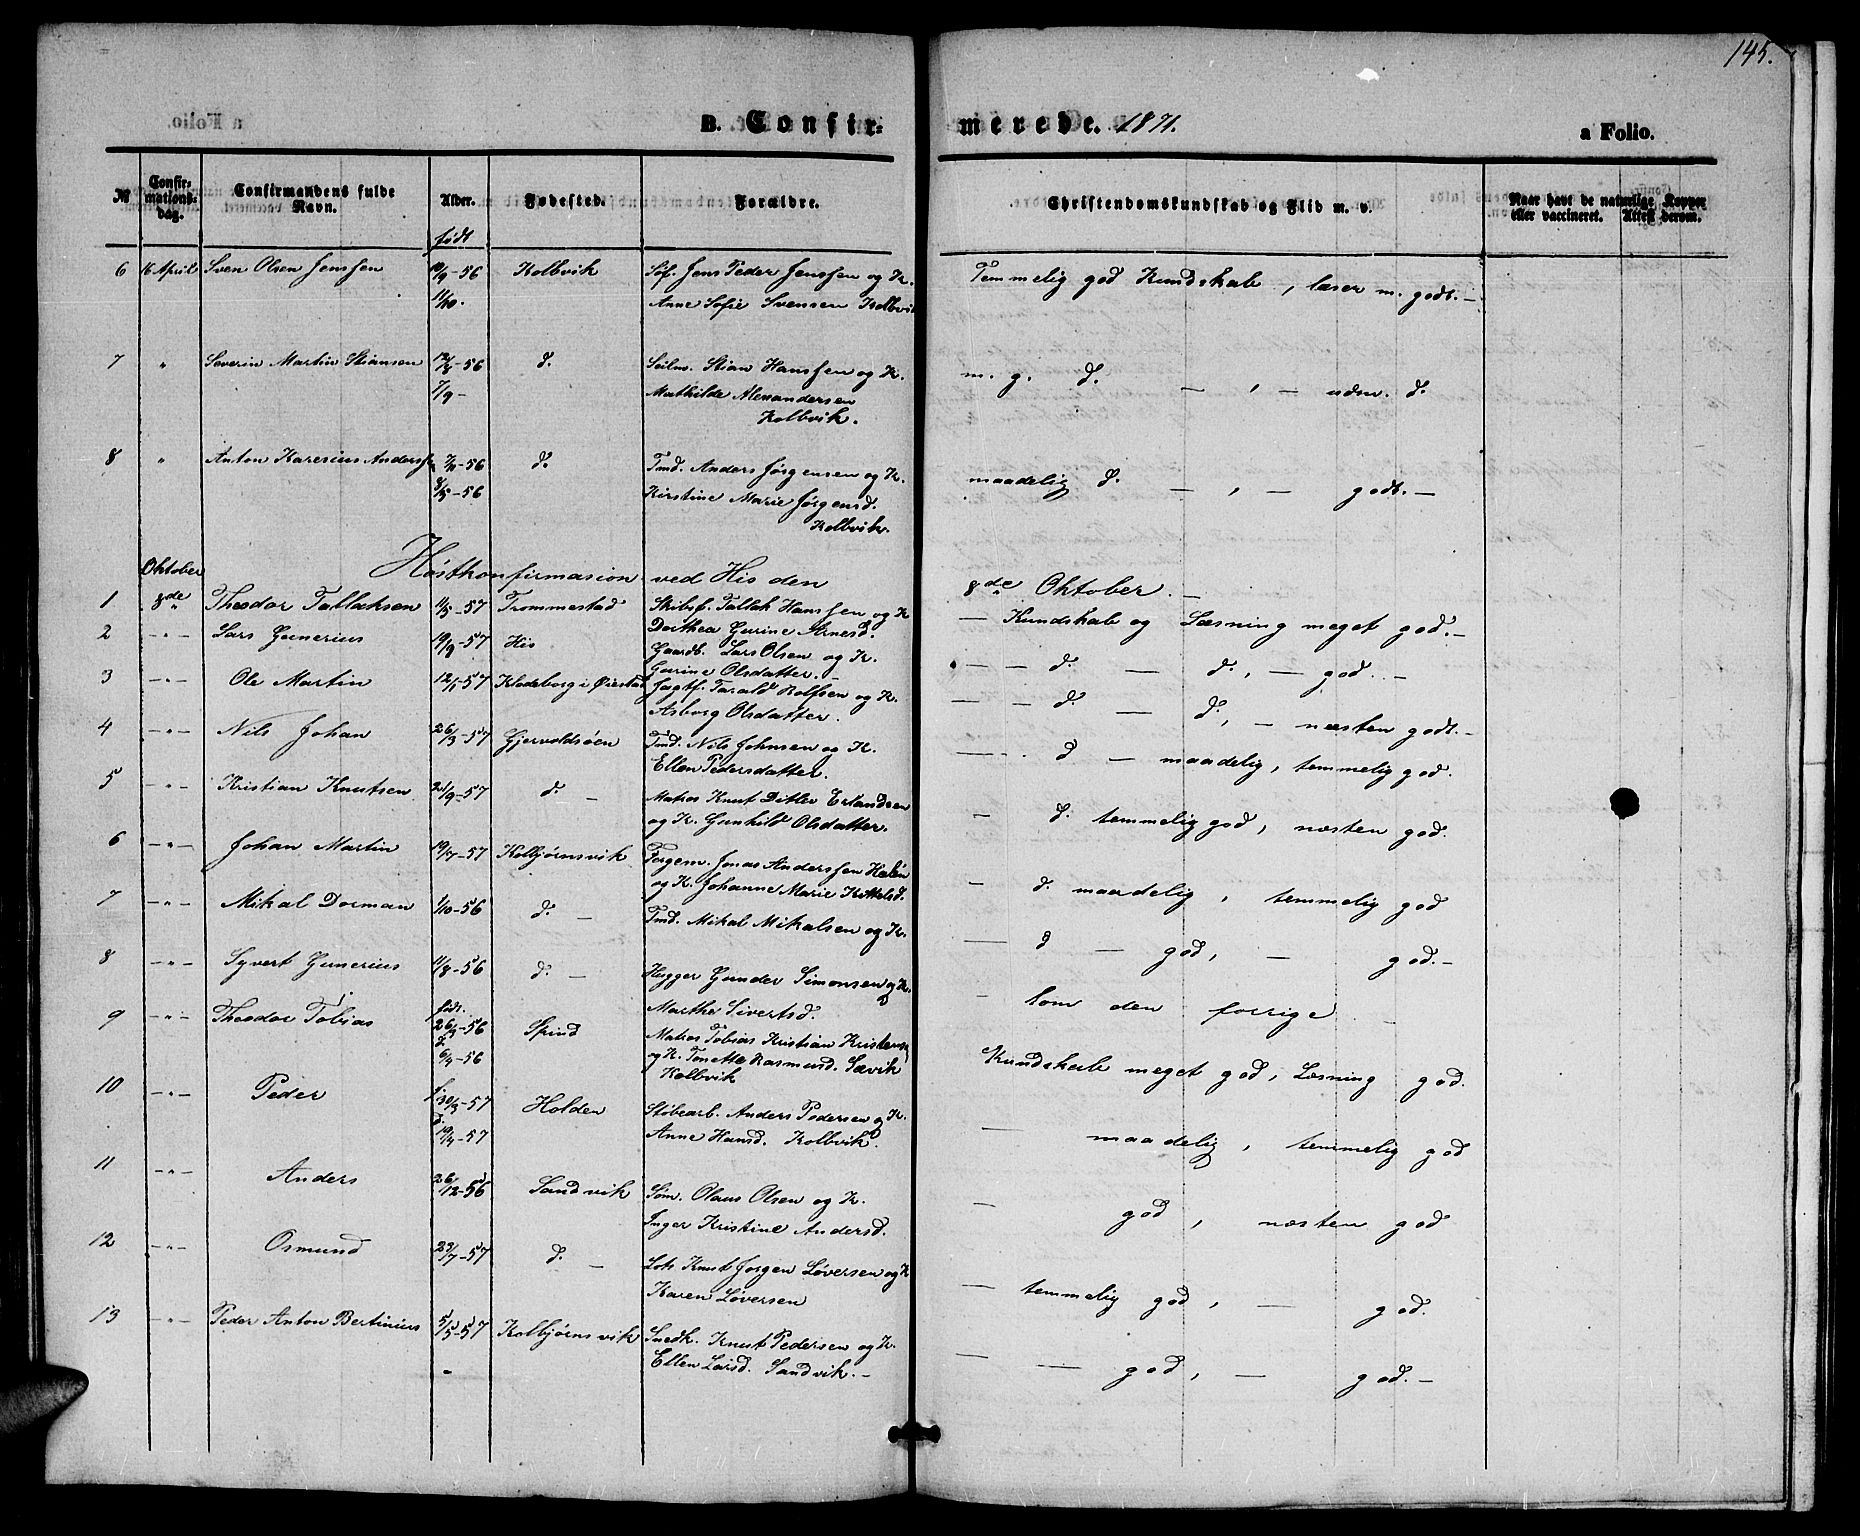 145.
B. Confirmerede. 1871.
a Folio.
№ | Confirmationsdag. | Confirmandens fulde Navn. | Alder. | Fødested. | Forældre. | Christendomskundskab og Flid m. v. | Naar havt de naturlige Kopper eller vaccineret. Attest derom.
født
6 16 April Sven Olsen Jenssen 19/9-56 Kolbvik Søf. Jens Peder Jenssen og K. Temmelig god Kundskab, læser m. godt.-
11/10. Anne Sofie Svensen Kolbvik
7 " Severin Martin Stiansen -56 d. Seilm. Stian Hanssen og K. m. g. d. - , - udm. d.
7/9 - Mathilde Alexandersen
Kolbvik.
8 " Anton Karenius Anderss -56 d. Tmd. Anders Jørgensen og K. maadelig d. - , - godt.-
-56 Kirstine Marie Jørgensd.
Kolbvik.
Oktober Høstkonfirmasion ved His den 8de Oktober.-
1 8de Theodor Tallaksen 11/5-57 Trommestad Skibsf. Tallak Hanssen og K. - Kundskab og Læsning meget god.-
Dorthea Gurine Arnesd.
2 -"- Lars Gunerius 19/9-57 His Gaardb. Lars Olsen og K. - - d. - d., - god. -
Gurine Olsdatter.-
3 -"- Ole Martin 12/1-57 Klodeborg i Øiestad Jagtf. Tarald Rolfsen og K. - - d. - d., - næsten godt.-
Asborg Olsdatter.
4 -"- Nils Johan 26/3-57 Gjervoldsøen Tmd. Nils Johnsen og K. - - d - maadelig, temmelig god.
Ellen Pedersdatter.
5 -"- Kristian Knutsen 21/9-57 d. - Matros Knut Ditlev Erlandsen - d. temmelig god, næsten god.
og K. Gunhild Olsdatter.
6 -"- Johan Martin 19/7-57 Kolbjørnsvik Fergem. Jonas Anderssen Halen - d. maadelig, temmelig god
og K. Johanne Marie Kittelsd.
7 -"- Mikal Dorman 1/10-56 d. - Tmd. Mikal Mikalsen og K. - d - god, - god.-
8 -"- Syvert Gunerius 11/8-56 d. - Hugger Gunder Simonsen og K. - Som den forrige -
Marthe Sivertsd.
9 -"- Theodor Tobias født. 26/3-56 Spind Matros Tobias Kristian Kristens Kundskab meget god, Læsning god.
6/4-56 og K. Tonette Rasmusd. Sævik
Kolbvik
10 -"- Peder f. 30/3-57 Holden Støbearb. Anders Pedersen og K. - maadelig, temmelig god
d. 19/4-57 Anne Hansd. Kolbvik.
11 -"- Anders 26/12-56 Sandvik Søm. Olaus Olsen og K. - god, næsten god
Inger Kristine Andersd.
12 -"- Osmund 23/7-57 d. - Lots Knut Jørgen Løversen og K - temmelig god, - god.
Karen Løversen
13 -"- Peder Anton Bertinius 5/5-57 Kolbjørnsvik Snedk. Knut Pedersen og K. - - god, - god.-
- Ellen Larsd. Sandvik.-